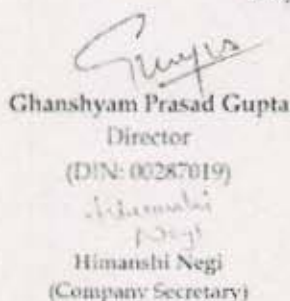 Ghanshyam Prasad Gupta
Director
(DIN: 00287019)
Himanshi
Negi
Himanshi Negi
(Company Secretary)